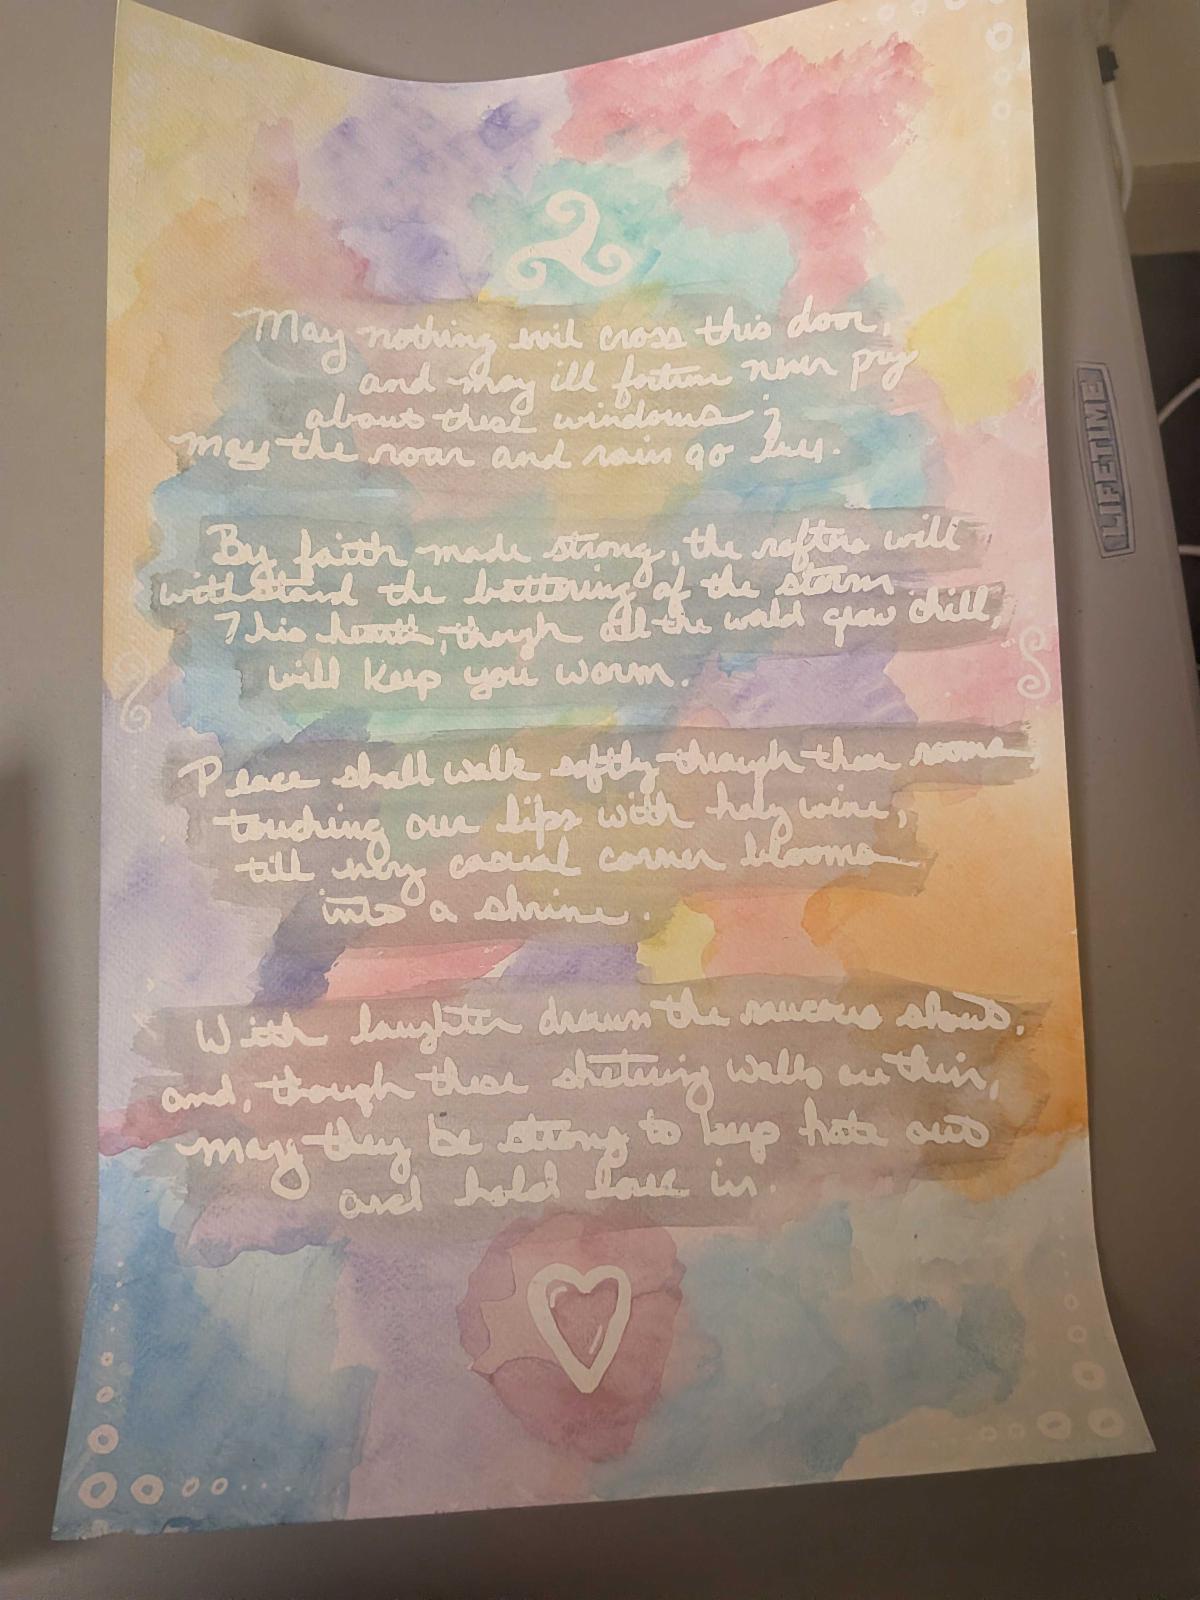 May nothing evil cross this door,
and may ill fortune never pry
about these windows;
May the roar and rain go by.
By faith made strong, the rafters will
withstand the battering of the storm
This hearth, though all the world grow chill,
will Keep you warm.
Peace shall walk softly through these rooms
touching our lips with holy wine,
till every casual corner blooms
into a shrine.
With laughter drown the raucous shout,
and, though these sheltering walls are thin,
may they be strong to keep hate out
and hold love in.
LIFETIME